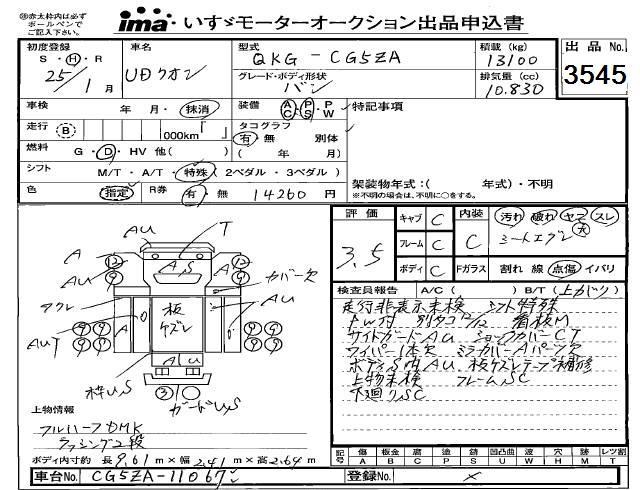 ㊟赤太枠内は必ず
ボールペンで
ご記入下さい。
ima いすゞモーターオークション出品申込書
初度登録 S・H・R 25/1月
車名 UDクオン
型式 QKG-CG5ZA
グレード・ボディ形状 バン
積載(kg) 13100
排気量(cc) 10.830
出品No. 3545
車検 年 月・抹消
装備 AC・PS・PW
特記事項
走行 B 000km
タコグラフ 有・無 別体
( 年 月)
燃料 G・D・HV 他( )
シフト M/T・A/T・特殊(2ペダル・3ペダル)
架装物年式:( 年式)・不明
※不明の場合は、不明に○をする。
色 指定 R券 有・無 14260円
評価 3.5
キャブ C
フレーム C
ボディ C
内装 C 汚れ 破れ ヤニ スレ
シートエグレ 大
Fガラス 割れ 線 点傷 イバリ
AU T
A A,S カバー欠
アクレ AU
A 板ケズレ
AUT
AU
枠US
ガードUS
⑫ ⑨ ⑨ ⑨ ⑨ ⑨
⑫ ⑨ ⑨ ⑨ ⑨ ⑨
③
検査員報告 A/C( ) B/T(上がり)
走行非表示未検 シフト特殊
PW付 別タコ 看板M
サイドガードAU ショックカバーCT
ワイパー1本欠 ミラカバーAパーツ欠
ボディS内AU、板ケズレテープ補修
上物未検 フレームSC
下廻りSC
上物情報
フルハーフDMK
ラッシング2段
ボディ内寸約 長9.61m×幅2.41m×高2.64m
記号 傷A 板金B 腐C 塗P 錆S 凹凸曲U 波W 穴H 跡M レツ割T
車台No. CG5ZA-11067
登録No. ×